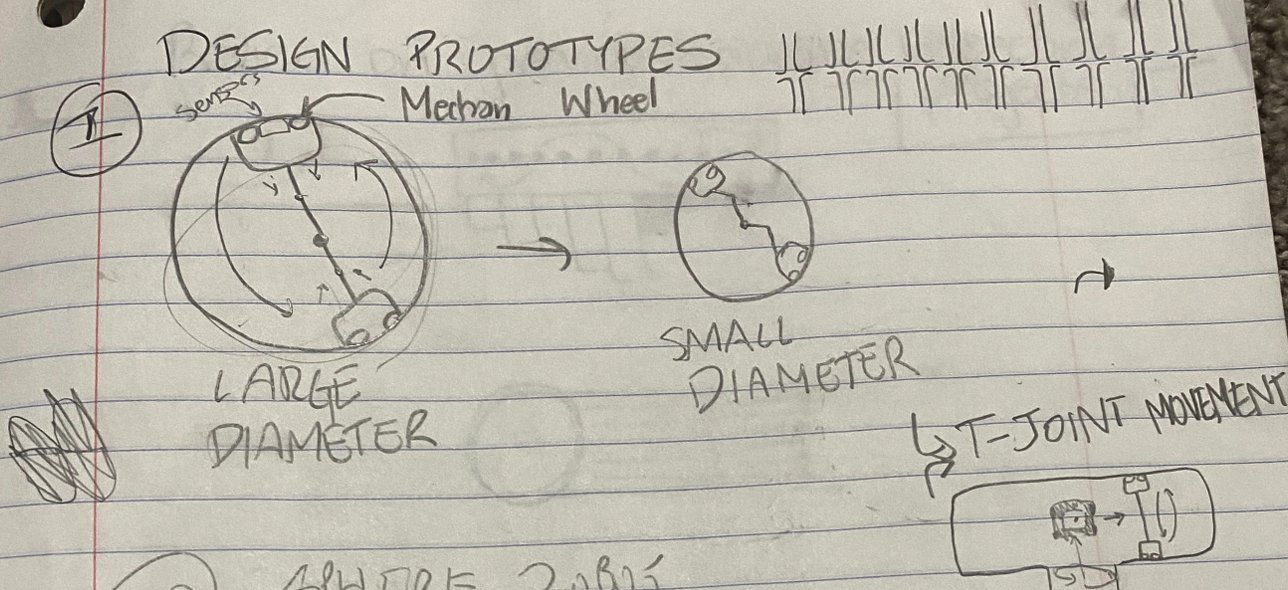 DESIGN PROTOTYPES
I
Mechan Wheel
LARGE
DIAMETER
SMALL
DIAMETER
T-JOINT MOVEMENT